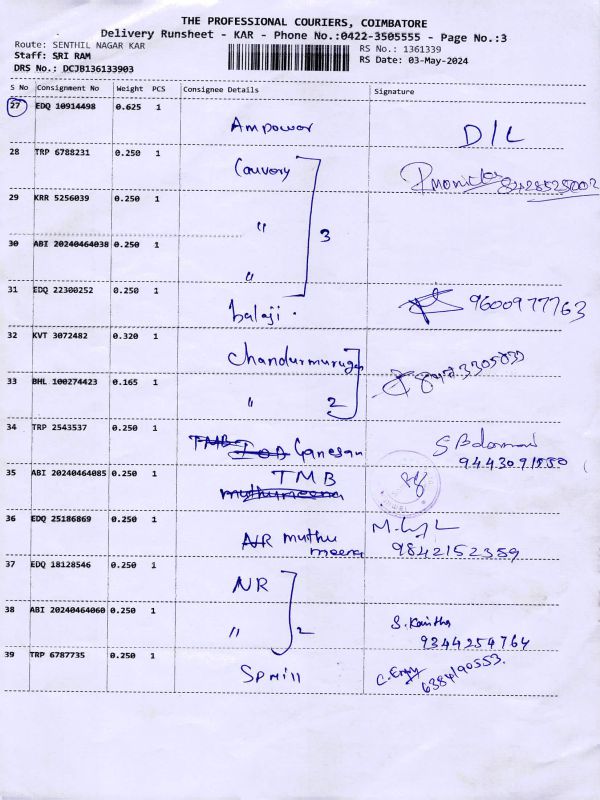 THE PROFESSIONAL COURIERS, COIMBATORE
Delivery Runsheet - KAR - Phone No.:0422-3505555 - Page No.:3
Route: SENTHIL NAGAR KAR
RS No.: 1361339
Staff: SRI RAM
RS Date: 03-May-2024
DRS No.: DCJB136133903
S No Consignment No Weight PCS Consignee Details Signature
27 EDQ 10914498 0.625 1
Ampower D/L
28 TRP 6788231 0.250 1
Cauvery 8428525002
29 KRR 5256039 0.250 1
" 3
30 ABI 20240464038 0.250 1
"
31 EDQ 22300252 0.250 1
balaji. 9600977763
32 KVT 3072482 0.320 1
Chandurmurugan
33 BHL 100274423 0.165 1
" 2
34 TRP 2543537 0.250 1
TMB IOB Ganesan
35 ABI 20240464085 0.250 1
TMB
muthumeena
36 EDQ 25186869 0.250 1
NR muthu
meena 9842152359
37 EDQ 18128546 0.250 1
NR
38 ABI 20240464060 0.250 1
" 2 9344254764
39 TRP 6787735 0.250 1
Spmill 6384190553.